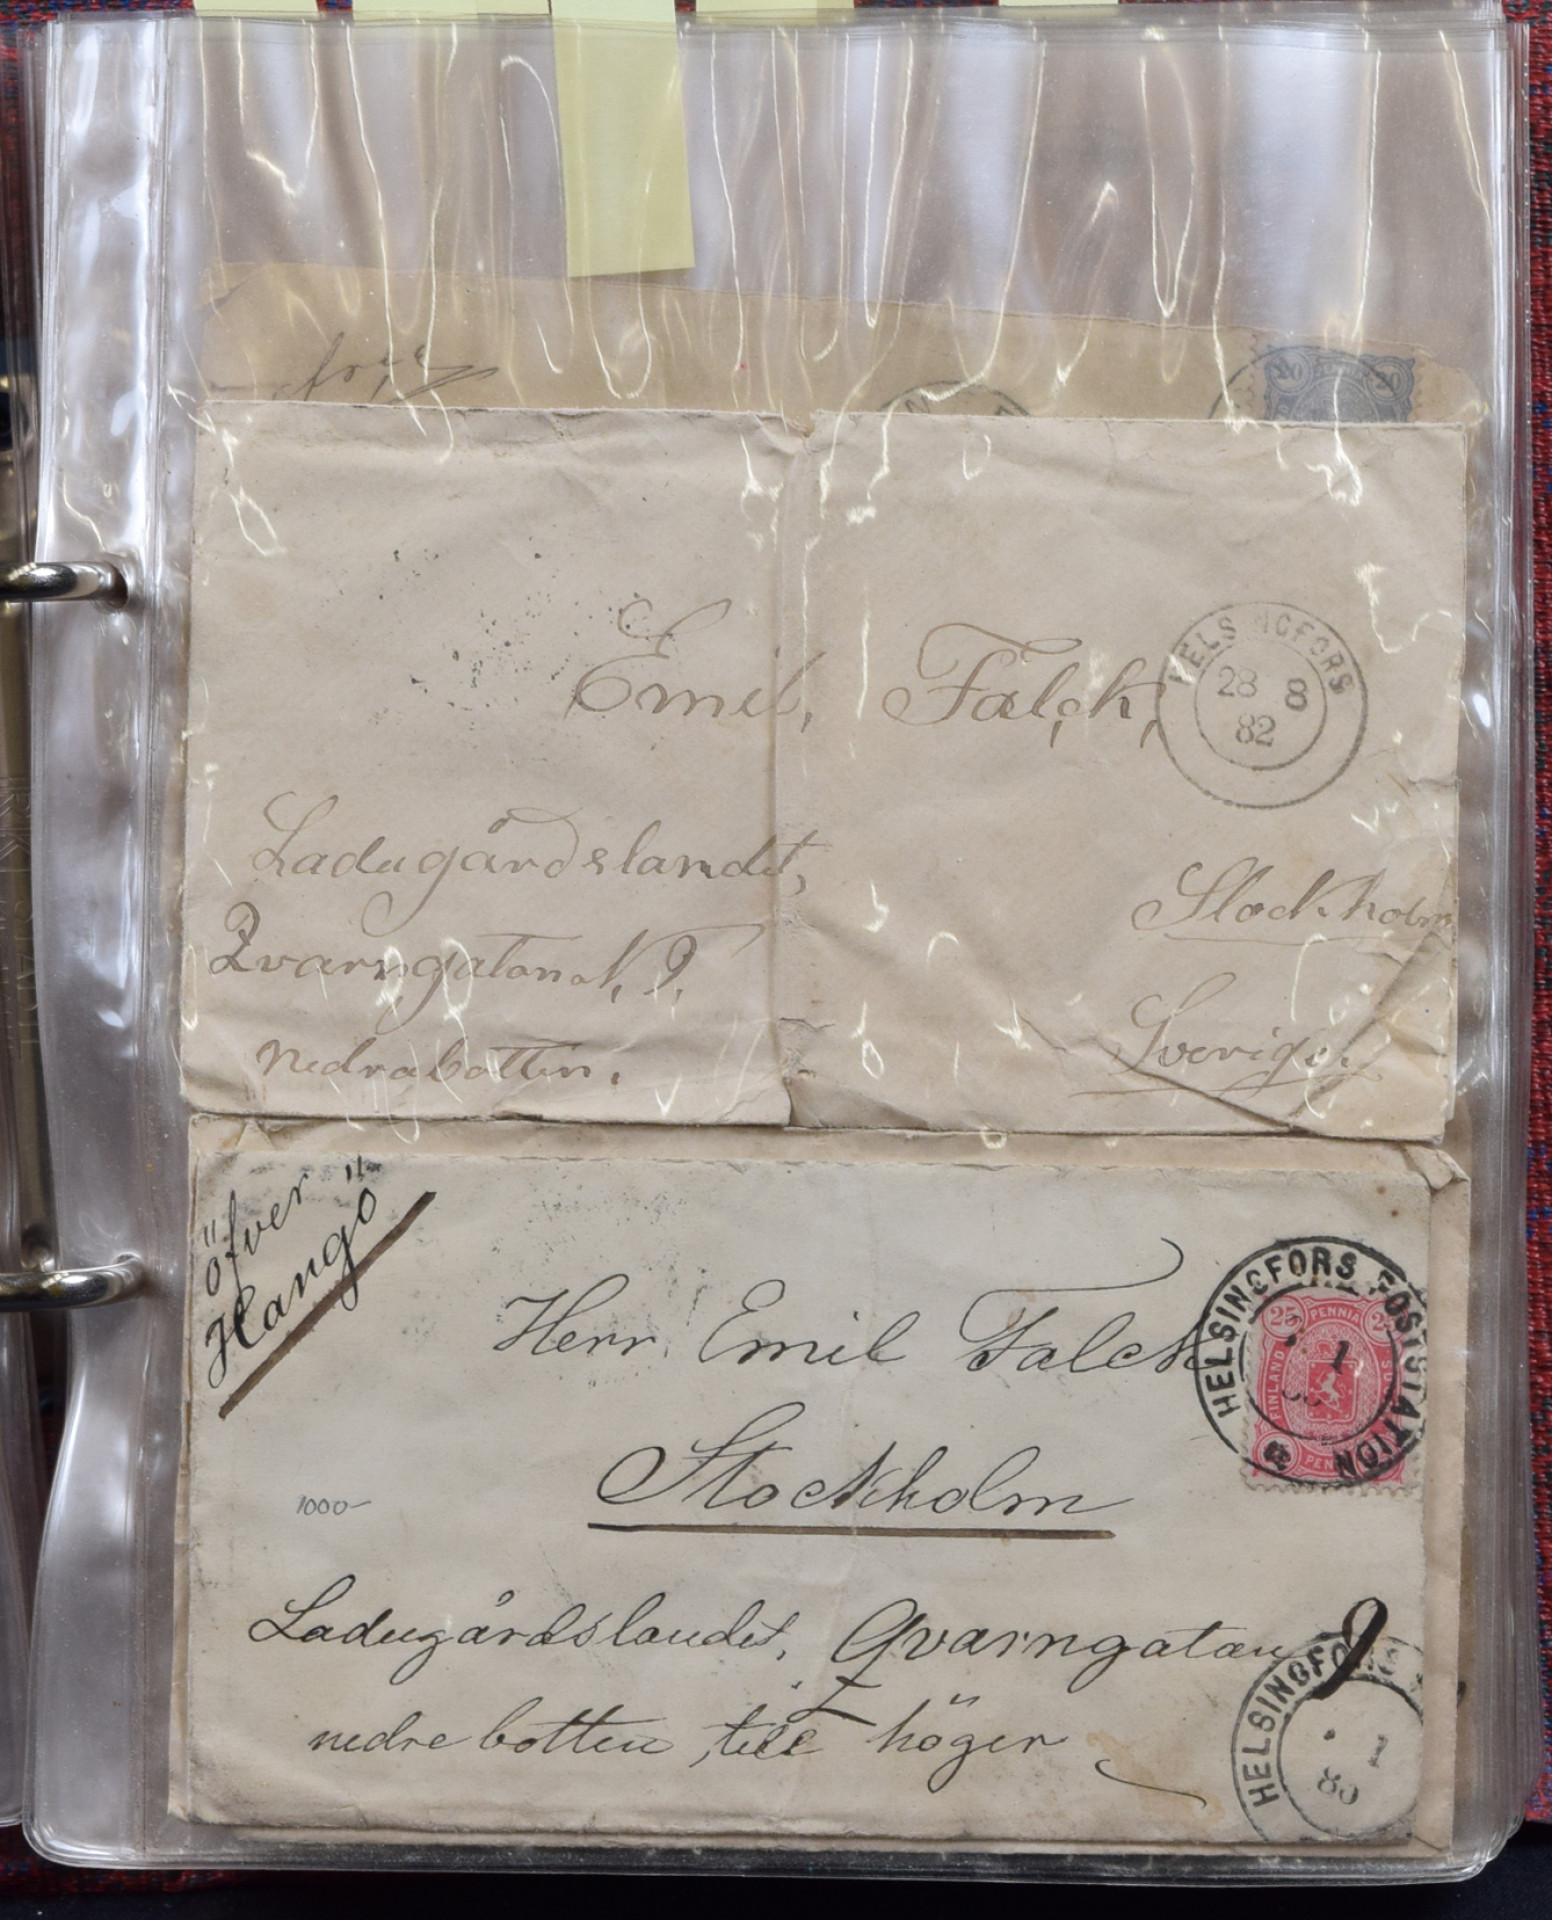 20 20
Emil, Falck,
HELSINGFORS
28 8
82
Ladugårdslandet,
Stockholm
Qvarngatan N. 9.
nedrabotten.
Sverige.
"öfver
Hangö"
HELSINGFORS POSTSTATION
25 PENNIA 25
FINLAND
1
Herr Emil Falck
Stockholm
1000-
Ladugårdslandet, Qvarngatan 9
nedre botten, till höger
HELSINGFO
1